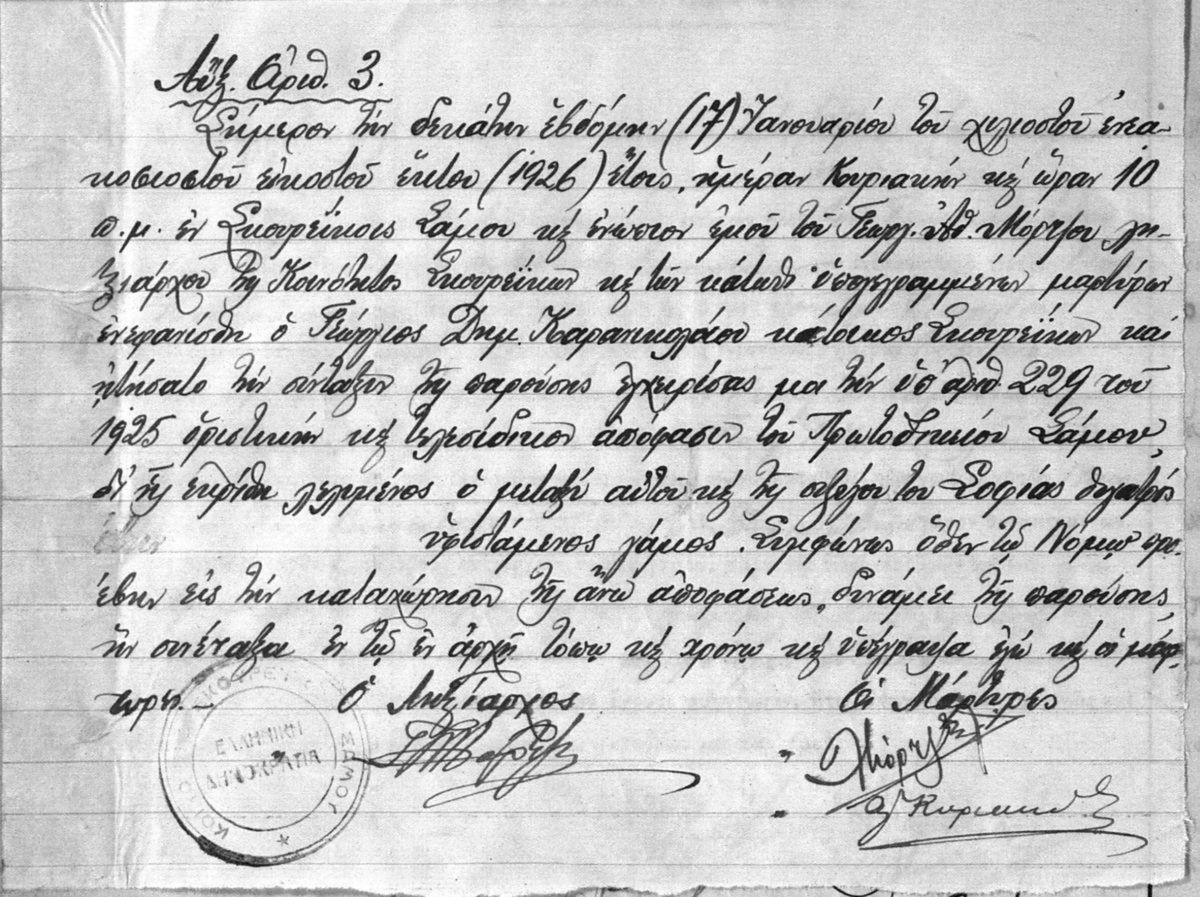 Αὔξ. Ἀριθ. 3.
Σήμερον τὴν δεκάτην ἑβδόμην (17) Ἰανουαρίου τοῦ χιλιοστοῦ ἐνεα-
κοσιοστοῦ εἰκοστοῦ ἕκτου (1926) ἔτους, ἡμέραν Κυριακὴν κὲ ὥραν 10
π.μ. ἐν Σκουρεΐκοις Σάμου κὲ ἐνώπιον ἐμοῦ τοῦ Γεωργ. Ἀθ. Μόρτζου λη-
ξιάρχου τῆς Κοινότητος Σκουρεΐκων κὲ τῶν κάτωθι ὑπογεγραμμένων μαρτύρων
ἐνεφανίσθη ὁ Γεώργιος Δημ. Καρανικολάου κάτοικος Σκουρεΐκων καὶ
ᾐτήσατο τὴν σύνταξιν τῆς παρούσης ἐγχειρίσας μοι τὴν ὑπ' ἀριθ. 229 τοῦ
1925 ὁριστικὴν κὲ τελεσίδικον ἀπόφασιν τοῦ Πρωτοδικείου Σάμου,
δι' ἧς ἐκρίθη λελυμένος ὁ μεταξὺ αὐτοῦ κὲ τῆς συζύγου του Σοφίας θυγατρὸς
ὑφιστάμενος γάμος. Συμφώνως ὅθεν τῷ Νόμῳ προ-
έβην εἰς τὴν καταχώρησιν τῆς ἄνω ἀποφάσεως, δυνάμει τῆς παρούσης,
ἣν συνέταξα ἐν τῷ ἐν ἀρχῇ τόπῳ κὲ χρόνῳ κὲ ὑπέγραψα ἐγὼ κὲ οἱ μάρ-
τυρες. —
Ὁ Ληξίαρχος
Οἱ Μάρτυρες
ΕΛΛΗΝΙΚΗ
ΔΗΜΟΚΡΑΤΙΑ